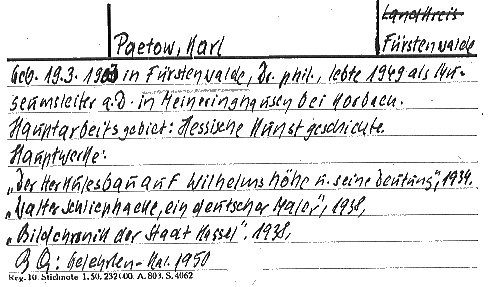 Landkreis
Paetow, Karl
Fürstenwalde
Geb. 19.3. 1903 in Fürstenwalde, Dr. phil., lebte 1949 als Mu-
seumsleiter a.D. in Meineringhausen bei Korbach.
Hauptarbeitsgebiet: Hessische Kunstgeschichte.
Hauptwerke:
„Der Herkulesbau auf Wilhelmshöhe u. seine Deutung", 1934.
„Walter Schliephacke, ein deutscher Maler", 1938,
„Bildchronik der Stadt Kassel". 1938,
Gelehrten-Kal. 1950
Reg. 10. Stichnote 1. 50. 232 000. A. 803. S. 4062